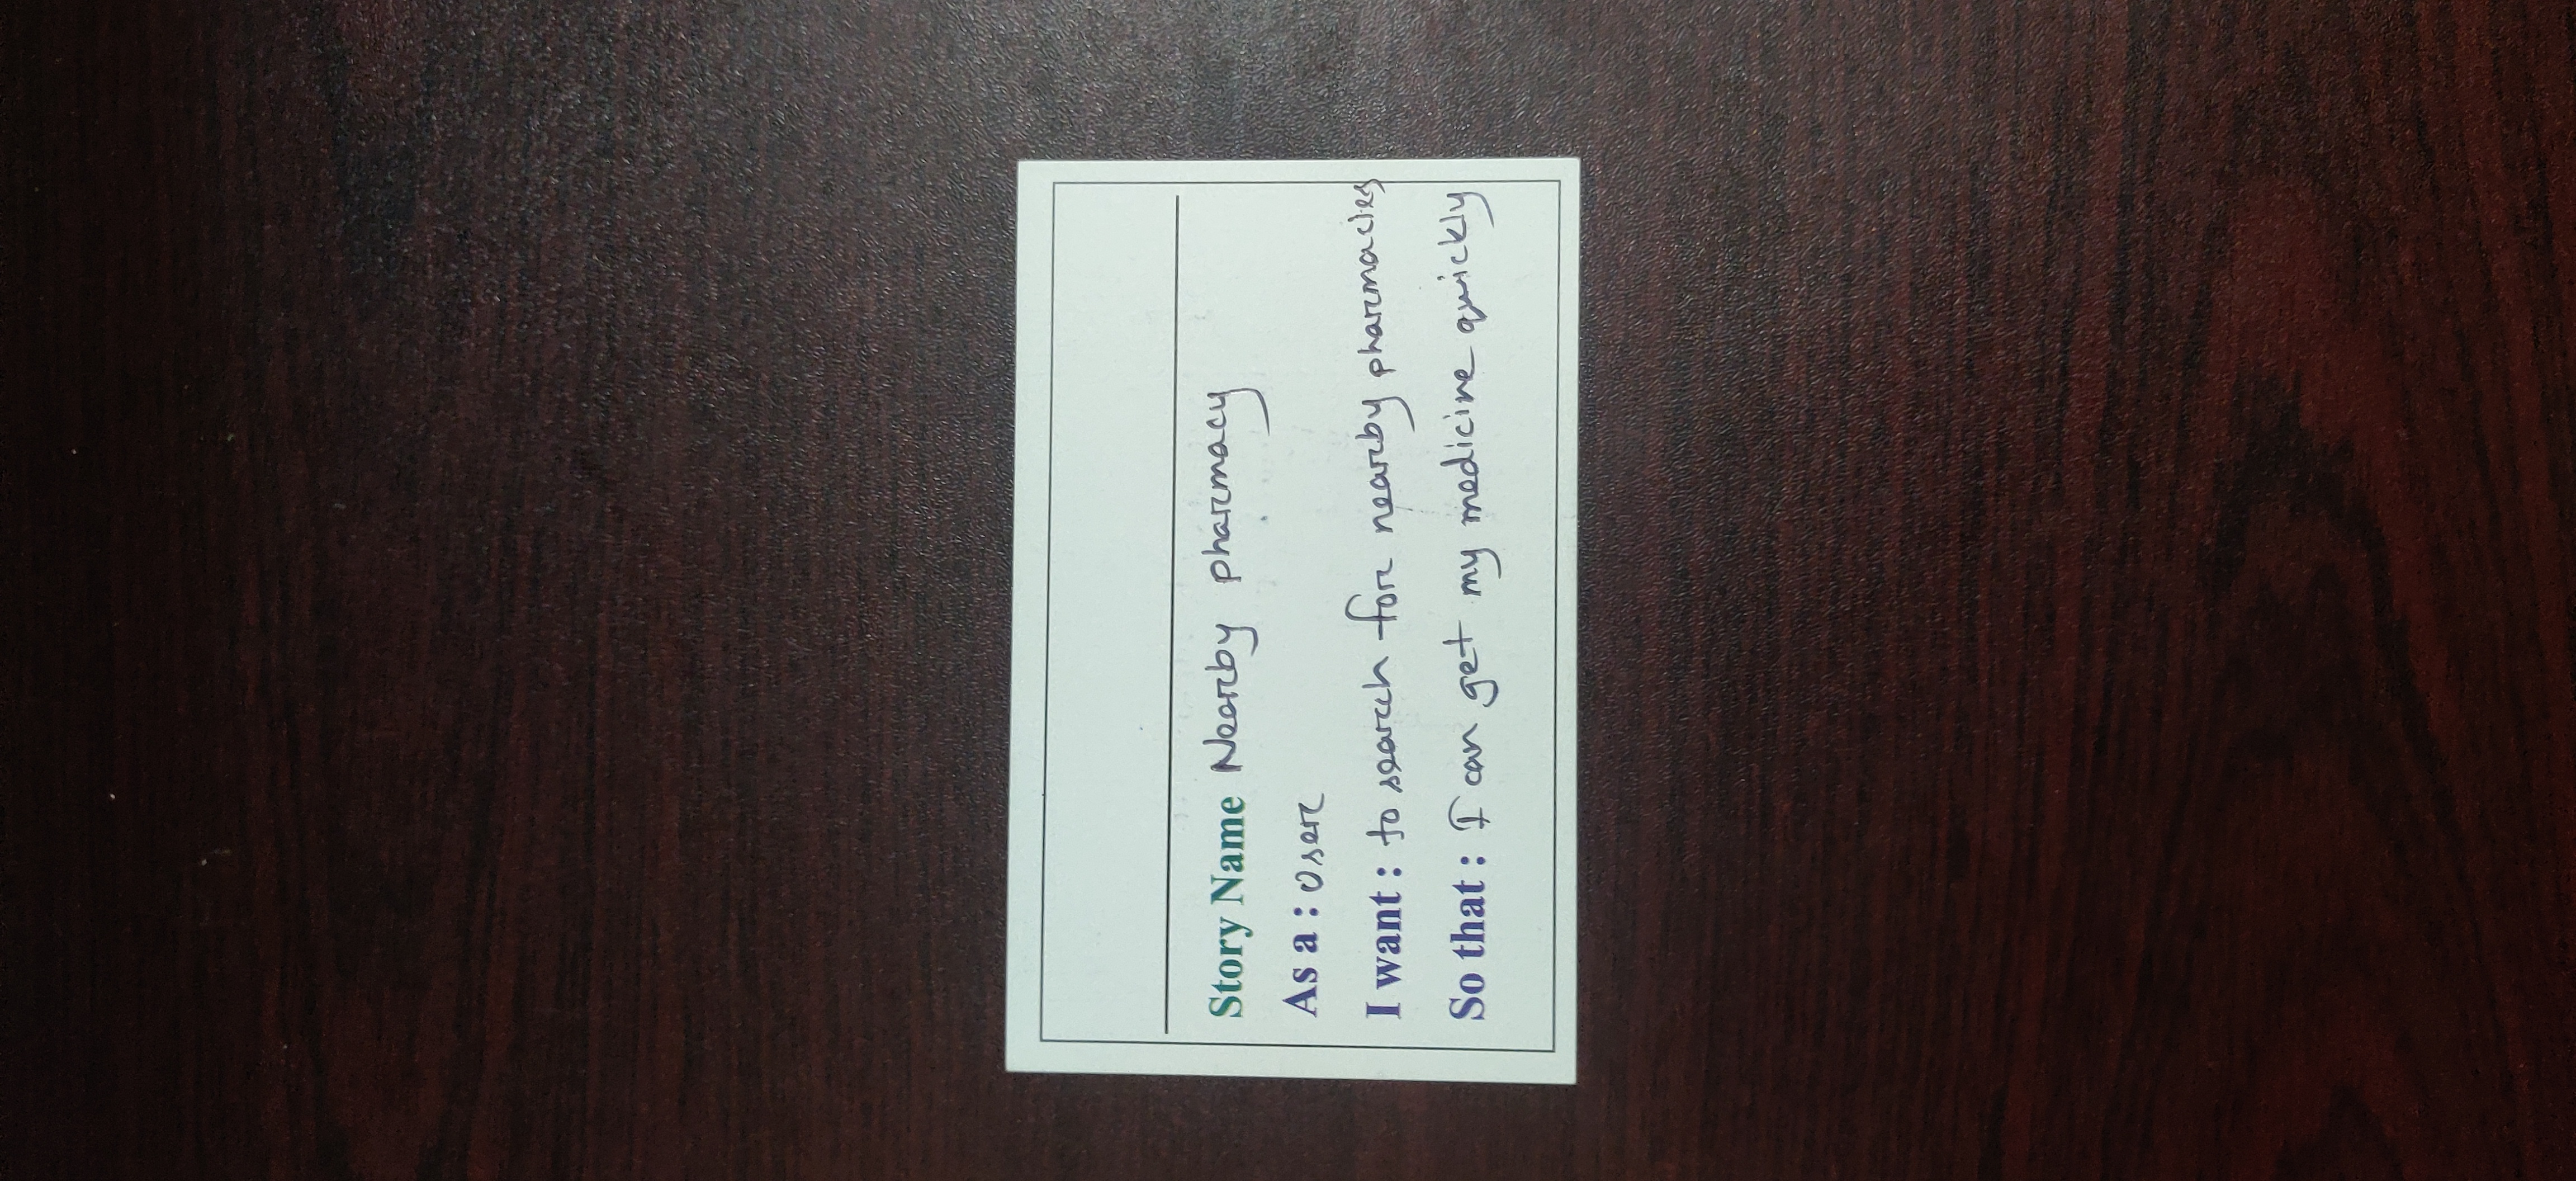 Story Name Nearby pharmacy
As a : User
I want : to search for nearby pharmacies
So that : I can get my medicine quickly